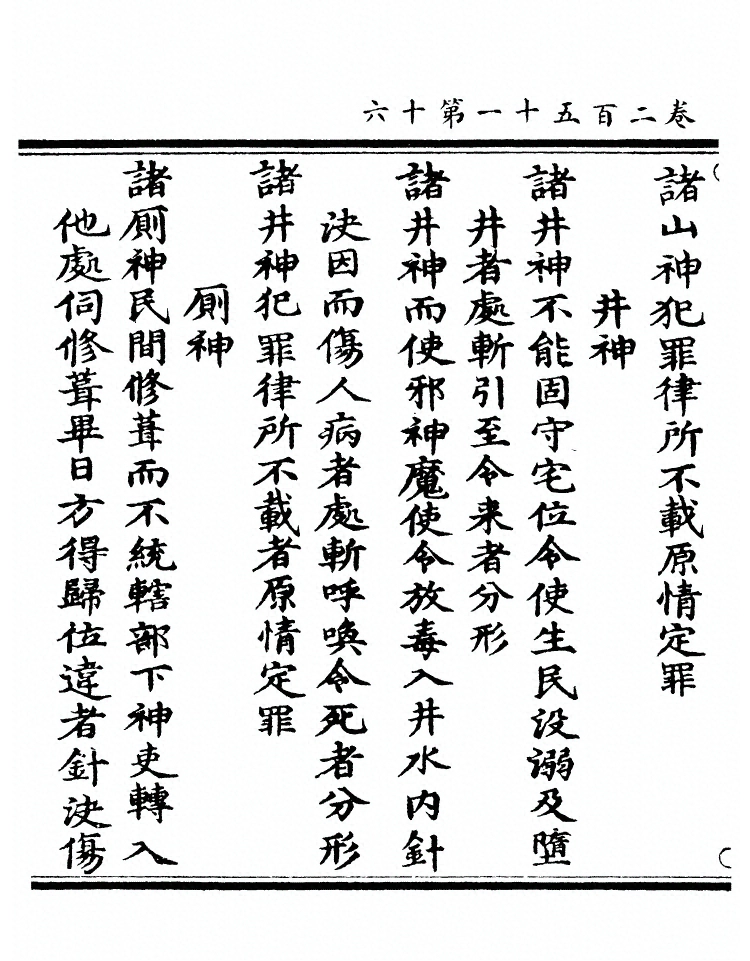 卷二百五十一第十六
諸山神犯罪律所不載原情定罪
井神
諸井神不能固守宅位令使生民没溺及墮
井者處斬引至令来者分形
諸井神而使邪神魔使令放毒入井水内針
决因而傷人病者處斬呼喚令死者分形
諸井神犯罪律所不載者原情定罪
厠神
諸厠神民間修葺而不統轄部下神吏轉入
他處伺修葺畢日方得歸位違者針决傷